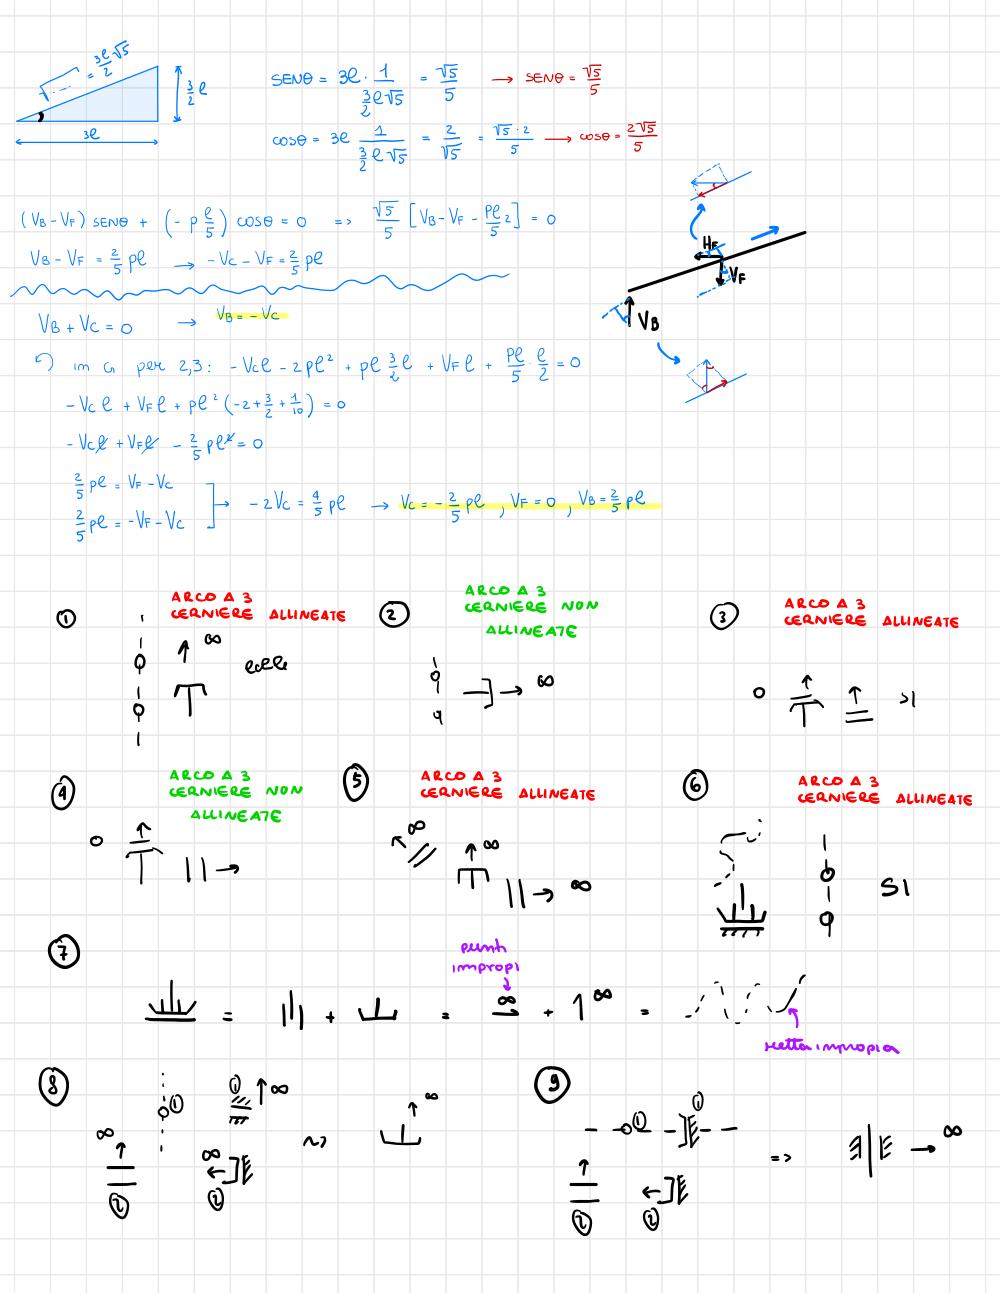 = 3ℓ/2 √5
3/2 ℓ
3ℓ
SENθ = 3ℓ · 1/(3/2 ℓ√5) = √5/5 → SENθ = √5/5
COSθ = 3ℓ 1/(3/2 ℓ√5) = 2/√5 = √5·2/5 → COSθ = 2√5/5
(VB - VF) SENθ + (-p ℓ/5) COSθ = 0 => √5/5 [VB - VF - Pℓ/5 2] = 0
VB - VF = 2/5 pℓ → -VC - VF = 2/5 pℓ
HF
VF
VB
VB + VC = 0 → VB = -VC
im G per 2,3: -VCℓ - 2pℓ² + pℓ 3/2 ℓ + VFℓ + Pℓ/5 · ℓ/2 = 0
-VCℓ + VFℓ + pℓ² (-2 + 3/2 + 1/10) = 0
-VCℓ + VFℓ - 2/5 pℓ² = 0
2/5 pℓ = VF - VC
2/5 pℓ = -VF - VC
→ -2VC = 4/5 pℓ → VC = -2/5 pℓ , VF = 0 , VB = 2/5 pℓ
1
ARCO A 3
CERNIERE ALLINEATE
∞
2
ARCO A 3
CERNIERE NON
ALLINEATE
∞
3
ARCO A 3
CERNIERE ALLINEATE
SI
4
ARCO A 3
CERNIERE NON
ALLINEATE
5
ARCO A 3
CERNIERE ALLINEATE
∞
∞
∞
6
ARCO A 3
CERNIERE ALLINEATE
SI
7
punti
impropi
= + = ∞ + ∞ =
retta impropia
8
1
1
∞
∞
∞
2
2
∞
9
1
1
=>
∞
2
2